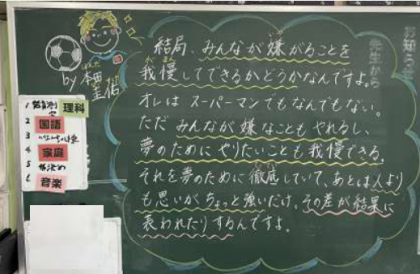 お知らせ
先生から
結局、みんなが嫌がることを
我慢してできるかどうかなんですよ。
オレはスーパーマンでもなんでもない。
ただみんなが嫌なこともやれるし、
夢のためにやりたいことも我慢できる。
それを夢のために徹底していて、あとは人より
も思いがちょっと強いだけ。その差が結果に
表われたりするんですよ。
by 本田圭佑
1 理科
2 国語
3
4 家庭
5
6 音楽